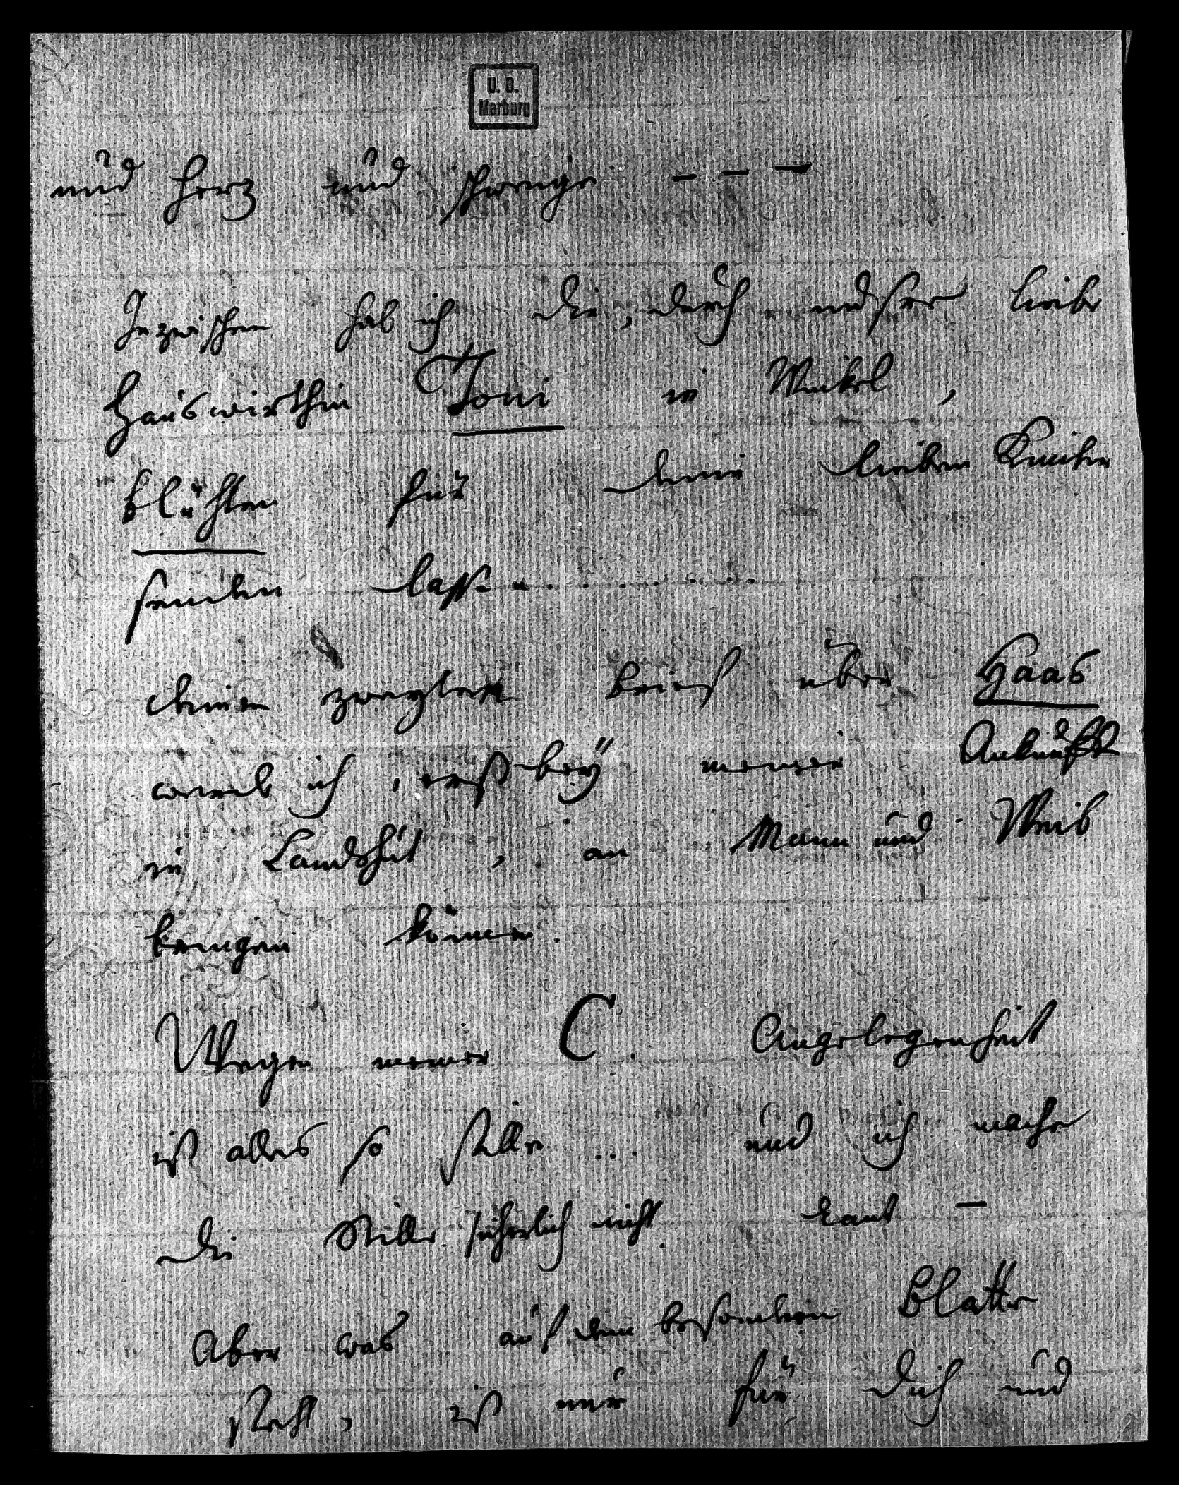 U. B.
Marburg
und Herz und schweige – – –
Inzwischen hab ich die, durch unsere liebe
Hauswirthin Toni in Winkel,
für deine lieben Kinder
senden lasse . . . . . . .
deinen zweyten Brief über Haas
werd ich, erst bey meiner Ankunft
in Landshut, an Mann und Weib
bringen können.
Wegen meiner C. Angelegenheit
ist alles so stille ... und ich mache
die Stille sicherlich nicht laut –
Aber was auf dem besondern Blatte
steht, ist nur für dich und